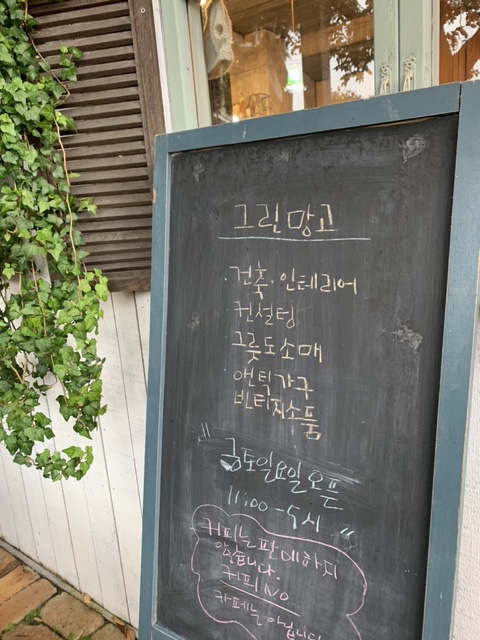 그린망고
· 건축 · 인테리어
컨설팅
그릇도소매
· 앤틱가구
빈티지소품
" 금토일요일오픈
11:00 - 5시 "
커피는판매하지
않습니다.
커피 NO.
카페는 아닙니다